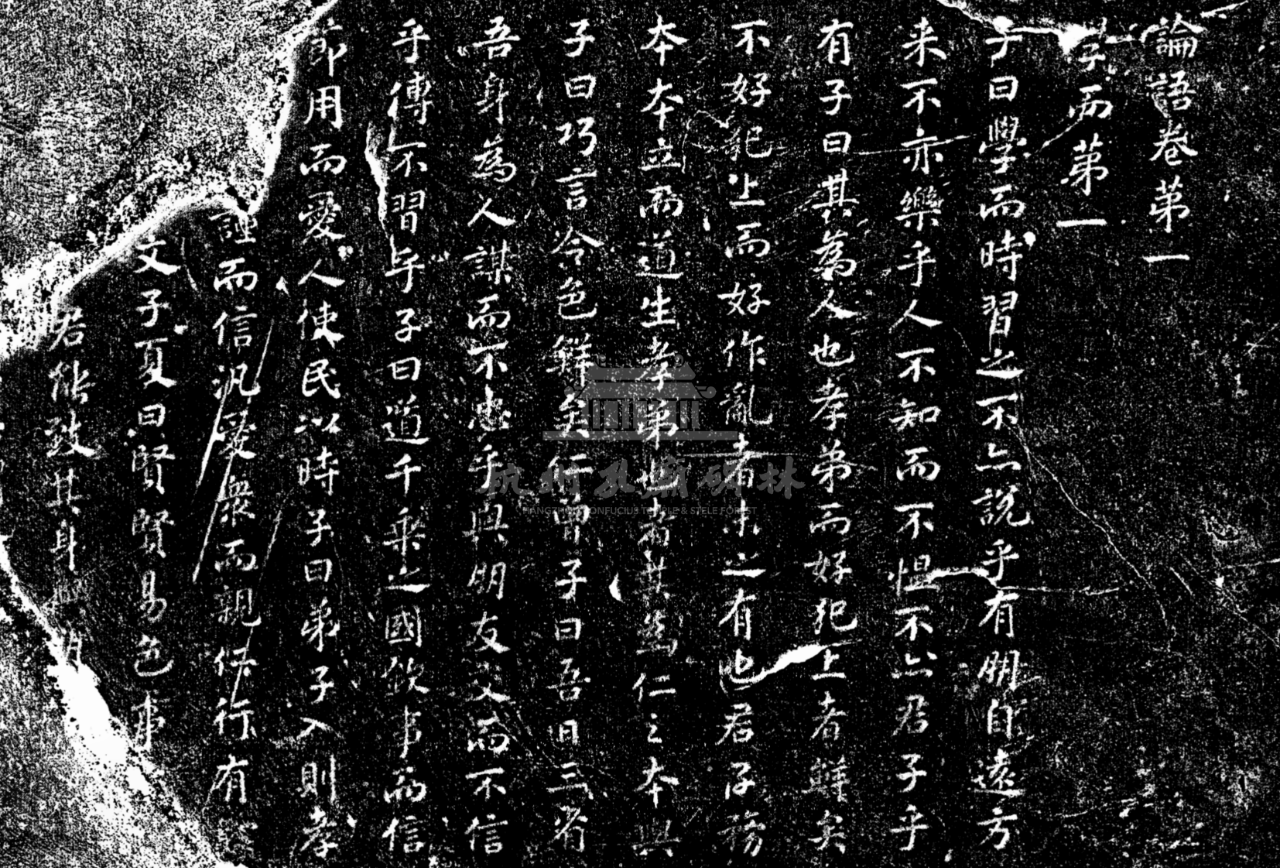 論語卷第一
學而第一
子曰學而時習之不亦說乎有朋自遠方
来不亦樂乎人不知而不愠不亦君子乎
有子曰其為人也孝弟而好犯上者鮮矣
不好犯上而好作亂者未之有也君子務
本本立而道生孝弟也者其為仁之本與
子曰巧言令色鮮矣仁曾子曰吾日三省
吾身為人謀而不忠乎與朋友交而不信
乎傳不習乎子曰道千乘之國敬事而信
節用而愛人使民以時子曰弟子入則孝
謹而信汎愛衆而親仁行有
文子夏曰賢賢易色事
君能致其身
杭州孔廟碑林
HANGZHOU CONFUCIUS TEMPLE & STELE FOREST